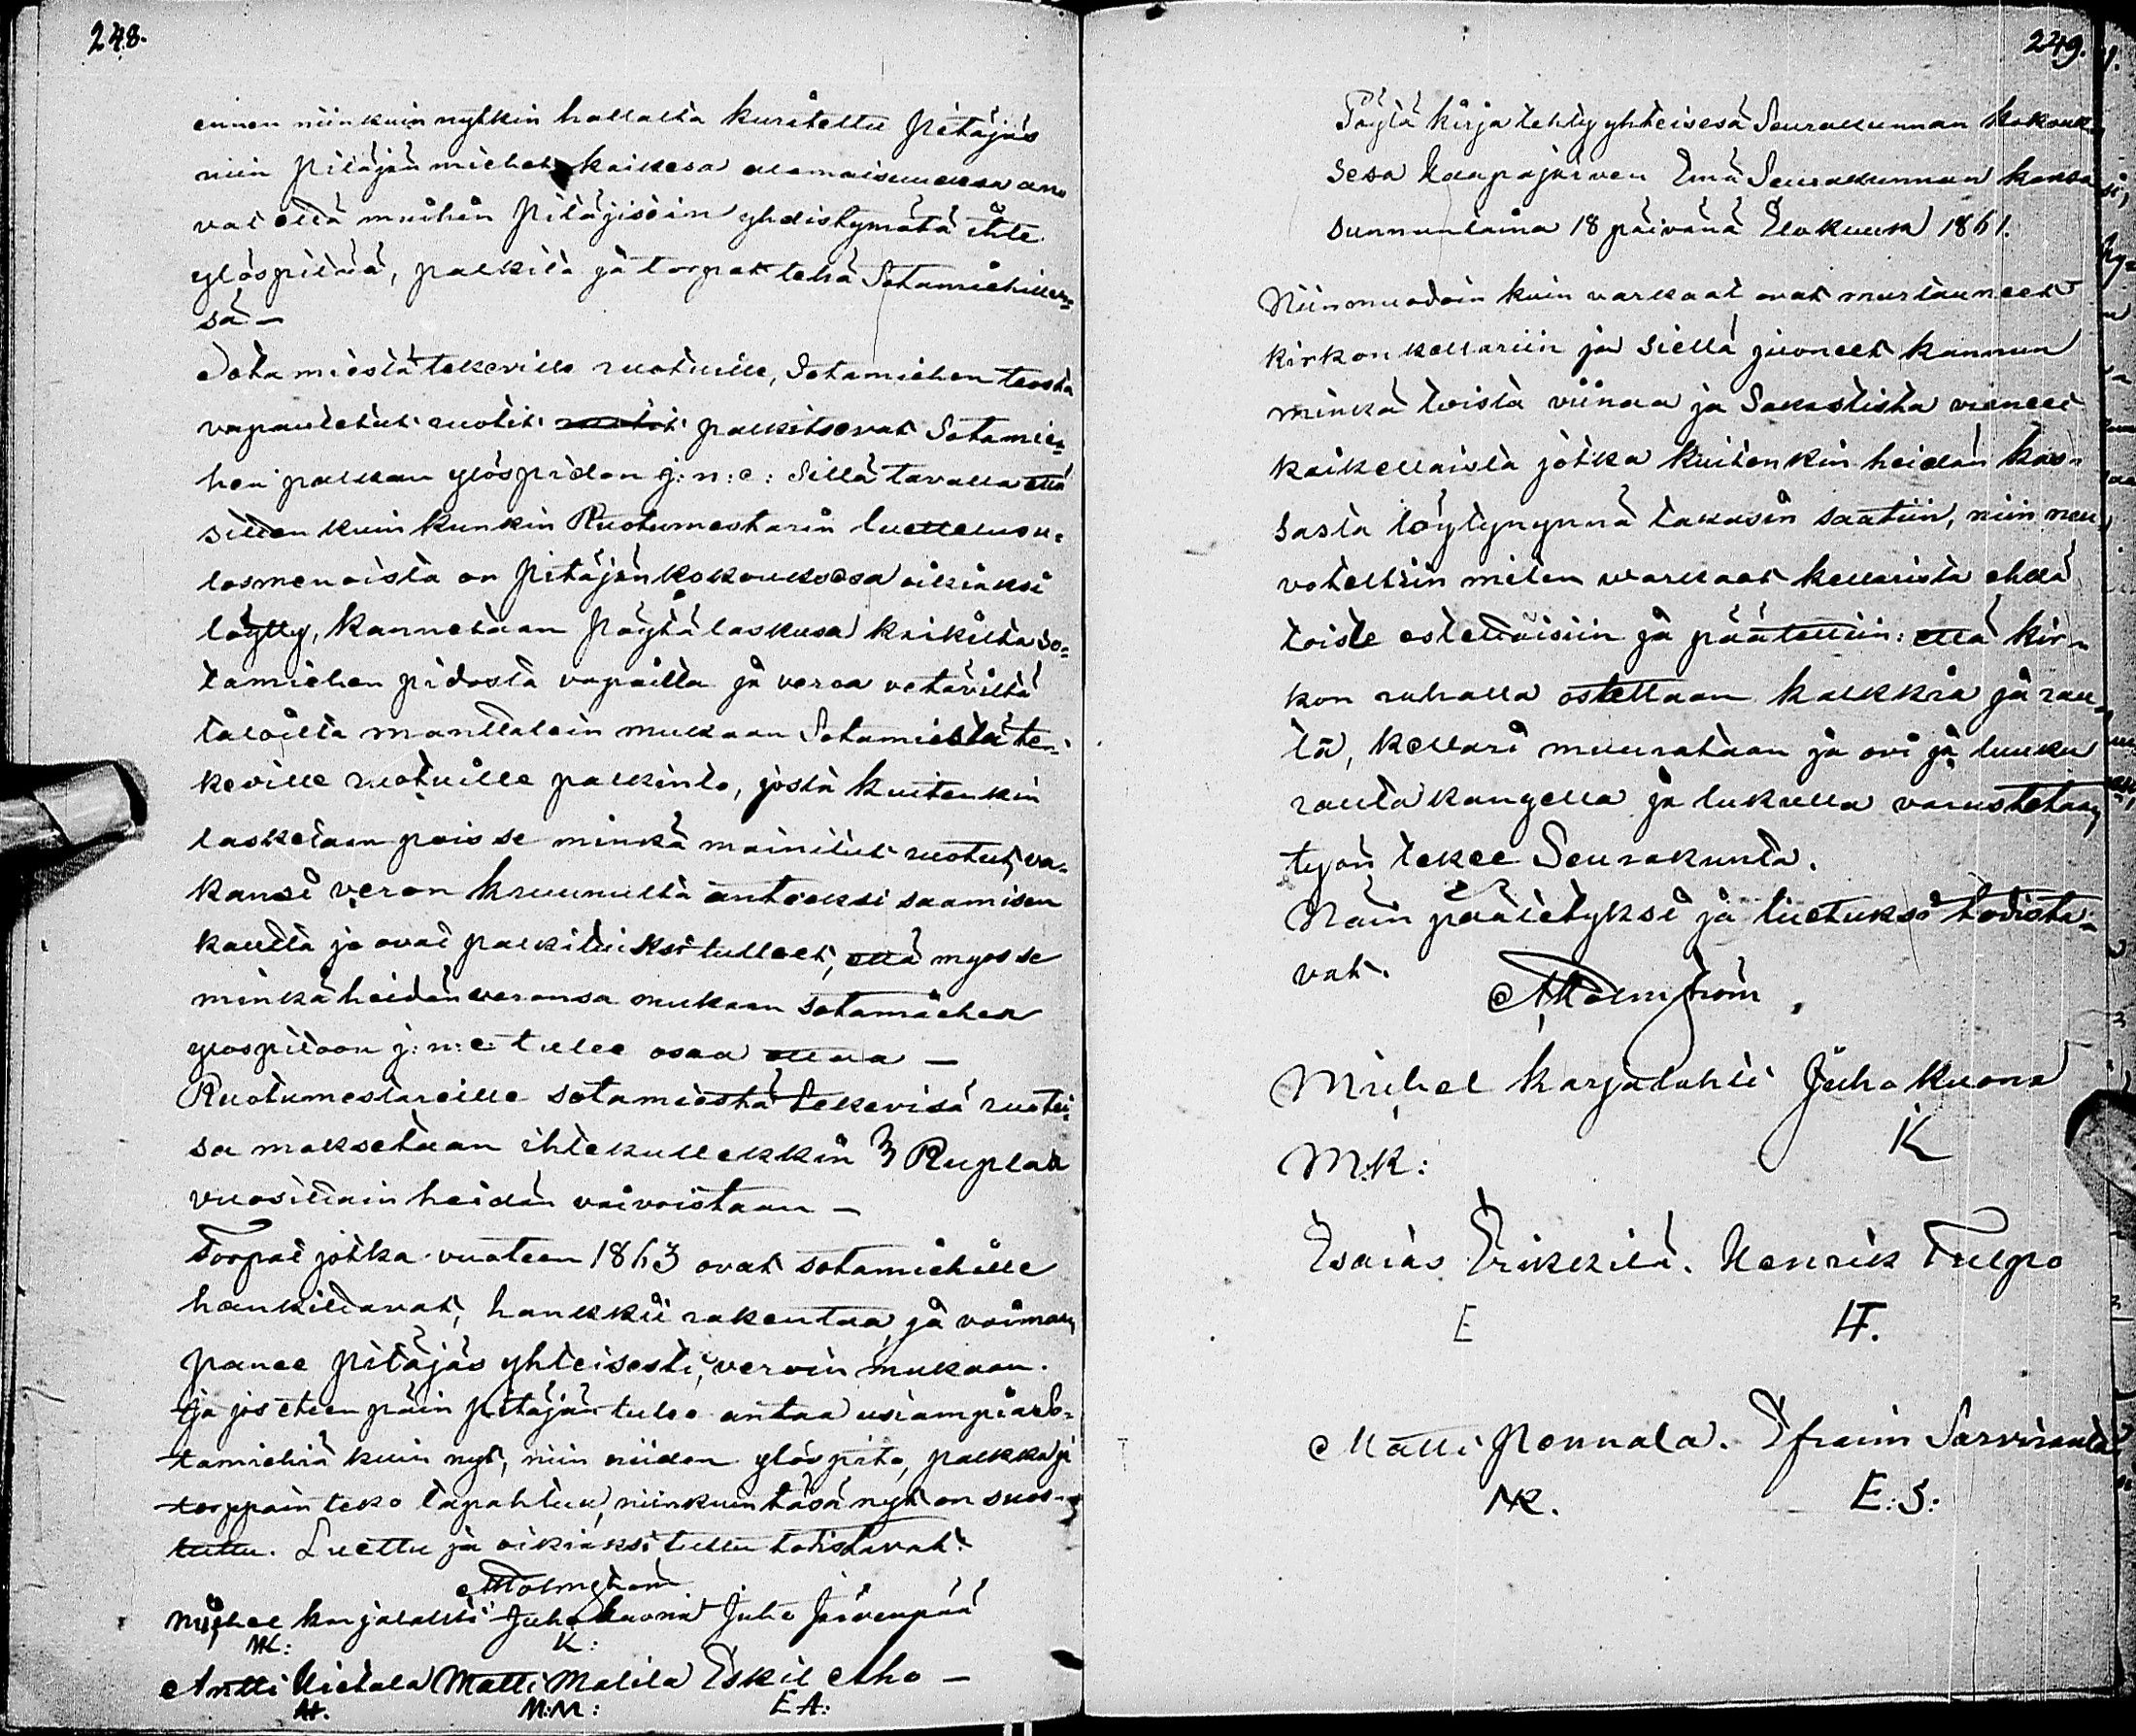 248.
ennen niinkuin nytkin hallalta kuritettu Pitäjäs
niin Pitäjän miehet kaikesa alamaisuudesa ano
vat että muihin Pitäjisiin yhdistymätä ihte
ylöspitää, palkita ja torpat tehä Sotamiehillen=
sä —
Sota miestä tekeville ruotuille, Sotamiehen teosta
vapautetut ruotit palkitsevat Sotamie=
hen palkan ylöspidon j: n: e: Sillä tavalla että
sitten kuin kunkin Ruotumestarin luettelus u=
losmenoista on Pitäjänkokouksesa oikiaksi
löytty, kannetaan Pöytälaskusa kaikilta so=
tamiehen pidosta vapailta ja veroa vetäviltä
taloilta manttalein mukaan Sotamiestä te=
keville ruotuille palkinto, josta kuitenkin
lasketaan pois se minkä mainitut ruotut, va=
kansi veron kruunulta anteeksi saamisen
kautta jo ovat palkituiksi tulleet, että myös se
minkä heidän veronsa mukaan sotamiehen
ylöspitoon j: n: e: tulee osaa ottaa —
Ruotumestareille sotamiestä tekevisä ruotui=
sa maksetaan ihtekullekkin 3 Ruplaa
vuosittain heidän vaivoistaan —
Torpat jotka vuoteen 1863 ovat sotamiehille
hankittavat, hankkii rakentaa ja voimaan
panee Pitäjäs yhteisesti, veroin mukaan.
Ja jos eteen päin Pitäjän tulee antaa usiampia So=
tamiehiä kuin nyt, niin niiden ylöspito, palkka ja
torppain teko tapahtuu, niinkuin täsä nyt on suos=
tuttu. Luettu ja oikiaksi tuttu todistavat.
A Holmström
Mihel Karjalahti Juho Kuona Juho Järvenpää
MK: K:
Antti Hietala Matti Malila Eskil Aho —
AH. M:M: E A:
249.
Pöytä kirja tehty yhteisesä Seurakunnan kokouk=
sesa Haapajärven Emä Seurakunnan kansa
sunnuntaina 18 päivänä Elokuusa 1861.
Niinmuodoin kuin varkaat ovat murtauneet
kirkon kellariin ja siellä juoneet kannun
minkä toista viinaa ja Sakastista vieneet
kaikellaista jotka kuitenkin heidän käs=
sästä löytynynnä takasin saatiin, niin neu=
voteltiin miten varkaat kellarista ehkä
toiste estettäisiin ja päätettiin: että kir=
kon rahalla ostettaan kalkkia ja rau=
ta, kellari muurataan ja ovi ja luuku
rautakangella ja lukulla varustetaan,
työn tekee Seurakunta.
Näin päätetyksi ja luetuksi todista=
vat.
A Holmström.
Mihel Karjalahti Juho Kuona
M:K: K
Esaias Erikkilä. Henrik Tulpo
E HT.
Matti Pennala. Efraim Sarviranta
E: S: